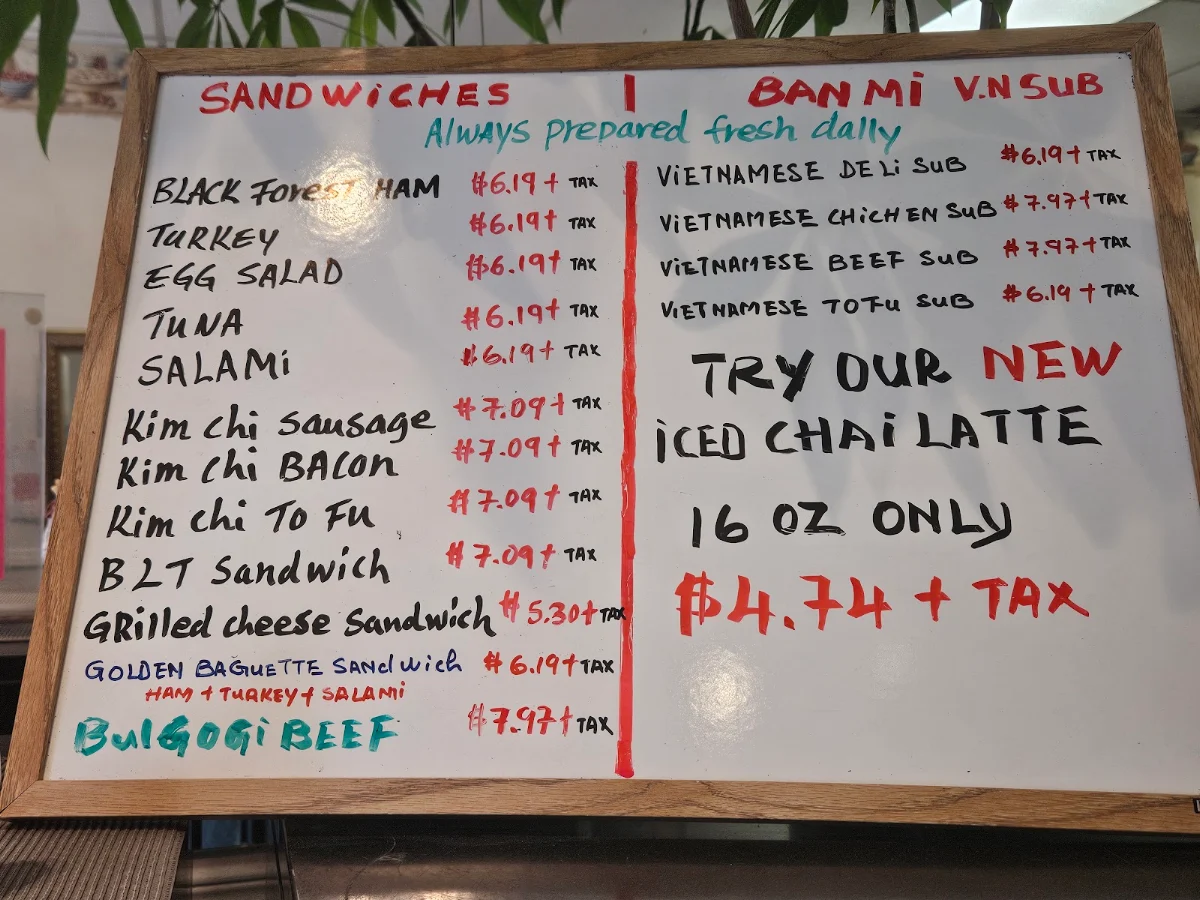 SANDWiCHES | BAN Mi V.N SUB
Always prepared fresh dally
BLACK Forest HAM $6.19 + TAX
TURKEY $6.19+ TAX
EGG SALAD $6.19+ TAX
TUNA $6.19+ TAX
SALAMi $6.19+ TAX
Kim chi sausage $7.09+ TAX
Kim chi BACon $7.09+ TAX
Kim chi To Fu $7.09+ TAX
BLT Sandwich $7.09+ TAX
GRilled cheese Sandwich $5.30+ TAX
GOLDEN BAGUETTE SANdwich $6.19+ TAX
HAM + TURKEY + SALAMi
BulGOGi BEEF $7.97+ TAX
ViETNAMESE DELi SUB $6.19+ TAX
ViETNAMESE CHiCHEN SUB $7.97+ TAX
ViETNAMESE BEEF SUB $7.97+ TAX
ViETNAMESE TOFU SUB $6.19 + TAX
TRY OUR NEW
iCED CHAi LATTE
16 OZ ONLY
$4.74 + TAX